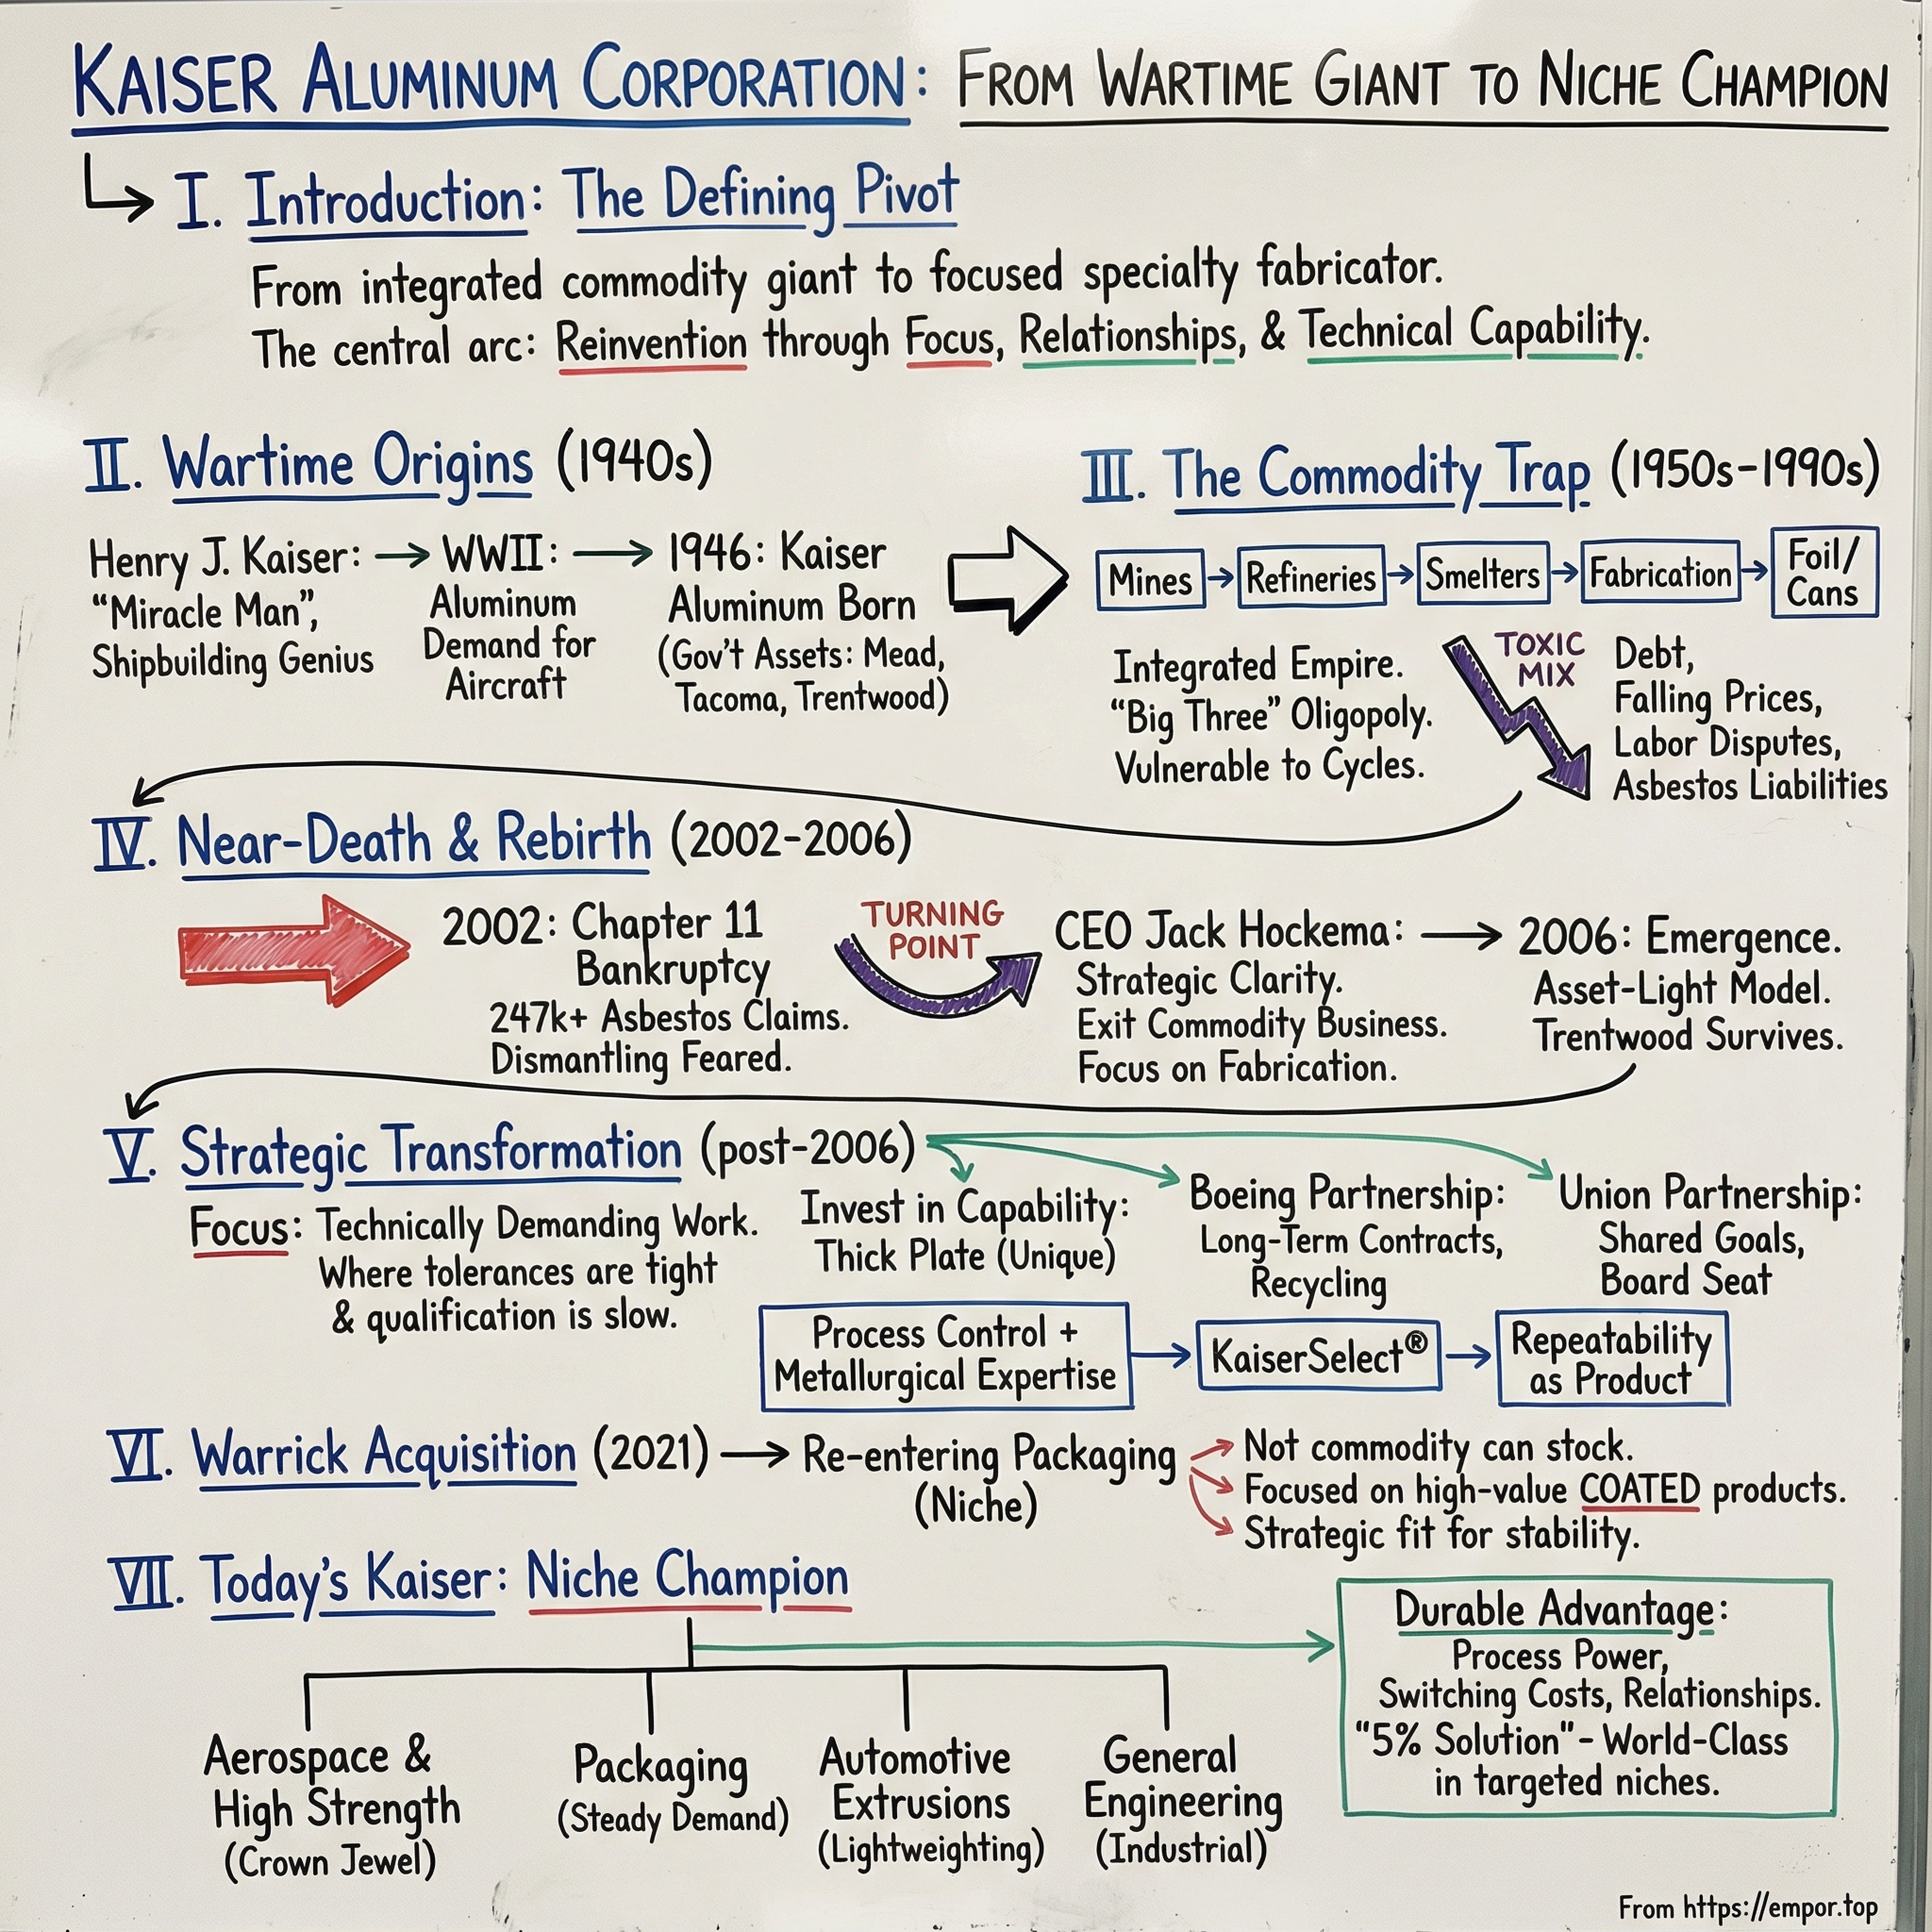 KAISER ALUMINUM CORPORATION: FROM WARTIME GIANT TO NICHE CHAMPION
I. Introduction: The Defining Pivot
From integrated commodity giant to focused specialty fabricator.
The central arc: Reinvention through Focus, Relationships, & Technical Capability.
II. Wartime Origins (1940s)
Henry J. Kaiser:
"Miracle Man",
Shipbuilding Genius
WWII:
Aluminum
Demand for
Aircraft
1946: Kaiser
Aluminum Born
(Gov't Assets: Mead,
Tacoma, Trentwood)
III. The Commodity Trap (1950s-1990s)
Mines
Refineries
Smelters
Fabrication
Foil/
Cans
Integrated Empire.
"Big Three" Oligopoly.
Vulnerable to Cycles.
TOXIC
MIX
Debt,
Falling Prices,
Labor Disputes,
Asbestos Liabilities
IV. Near-Death & Rebirth (2002-2006)
2002: Chapter 11
Bankruptcy
247k+ Asbestos Claims.
Dismantling Feared.
TURNING
POINT
CEO Jack Hockema:
Strategic Clarity.
Exit Commodity Business.
Focus on Fabrication.
2006: Emergence.
Asset-Light Model.
Trentwood Survives.
V. Strategic Transformation (post-2006)
Focus: Technically Demanding Work.
Where tolerances are tight
& qualification is slow.
Invest in Capability:
Thick Plate (Unique)
Boeing Partnership:
Long-Term Contracts,
Recycling
Union Partnership:
Shared Goals,
Board Seat
Process Control +
Metallurgical Expertise
KaiserSelect®
Repeatability
as Product
VI. Warrick Acquisition (2021)
Re-entering Packaging
(Niche)
Not commodity can stock.
Focused on high-value COATED products.
Strategic fit for stability.
VII. Today's Kaiser: Niche Champion
Aerospace &
High Strength
(Crown Jewel)
Packaging
(Steady Demand)
Automotive
Extrusions
(Lightweighting)
General
Engineering
(Industrial)
Durable Advantage:
Process Power,
Switching Costs, Relationships.
"5% Solution"- World-Class
in targeted niches.
From https://empor.top